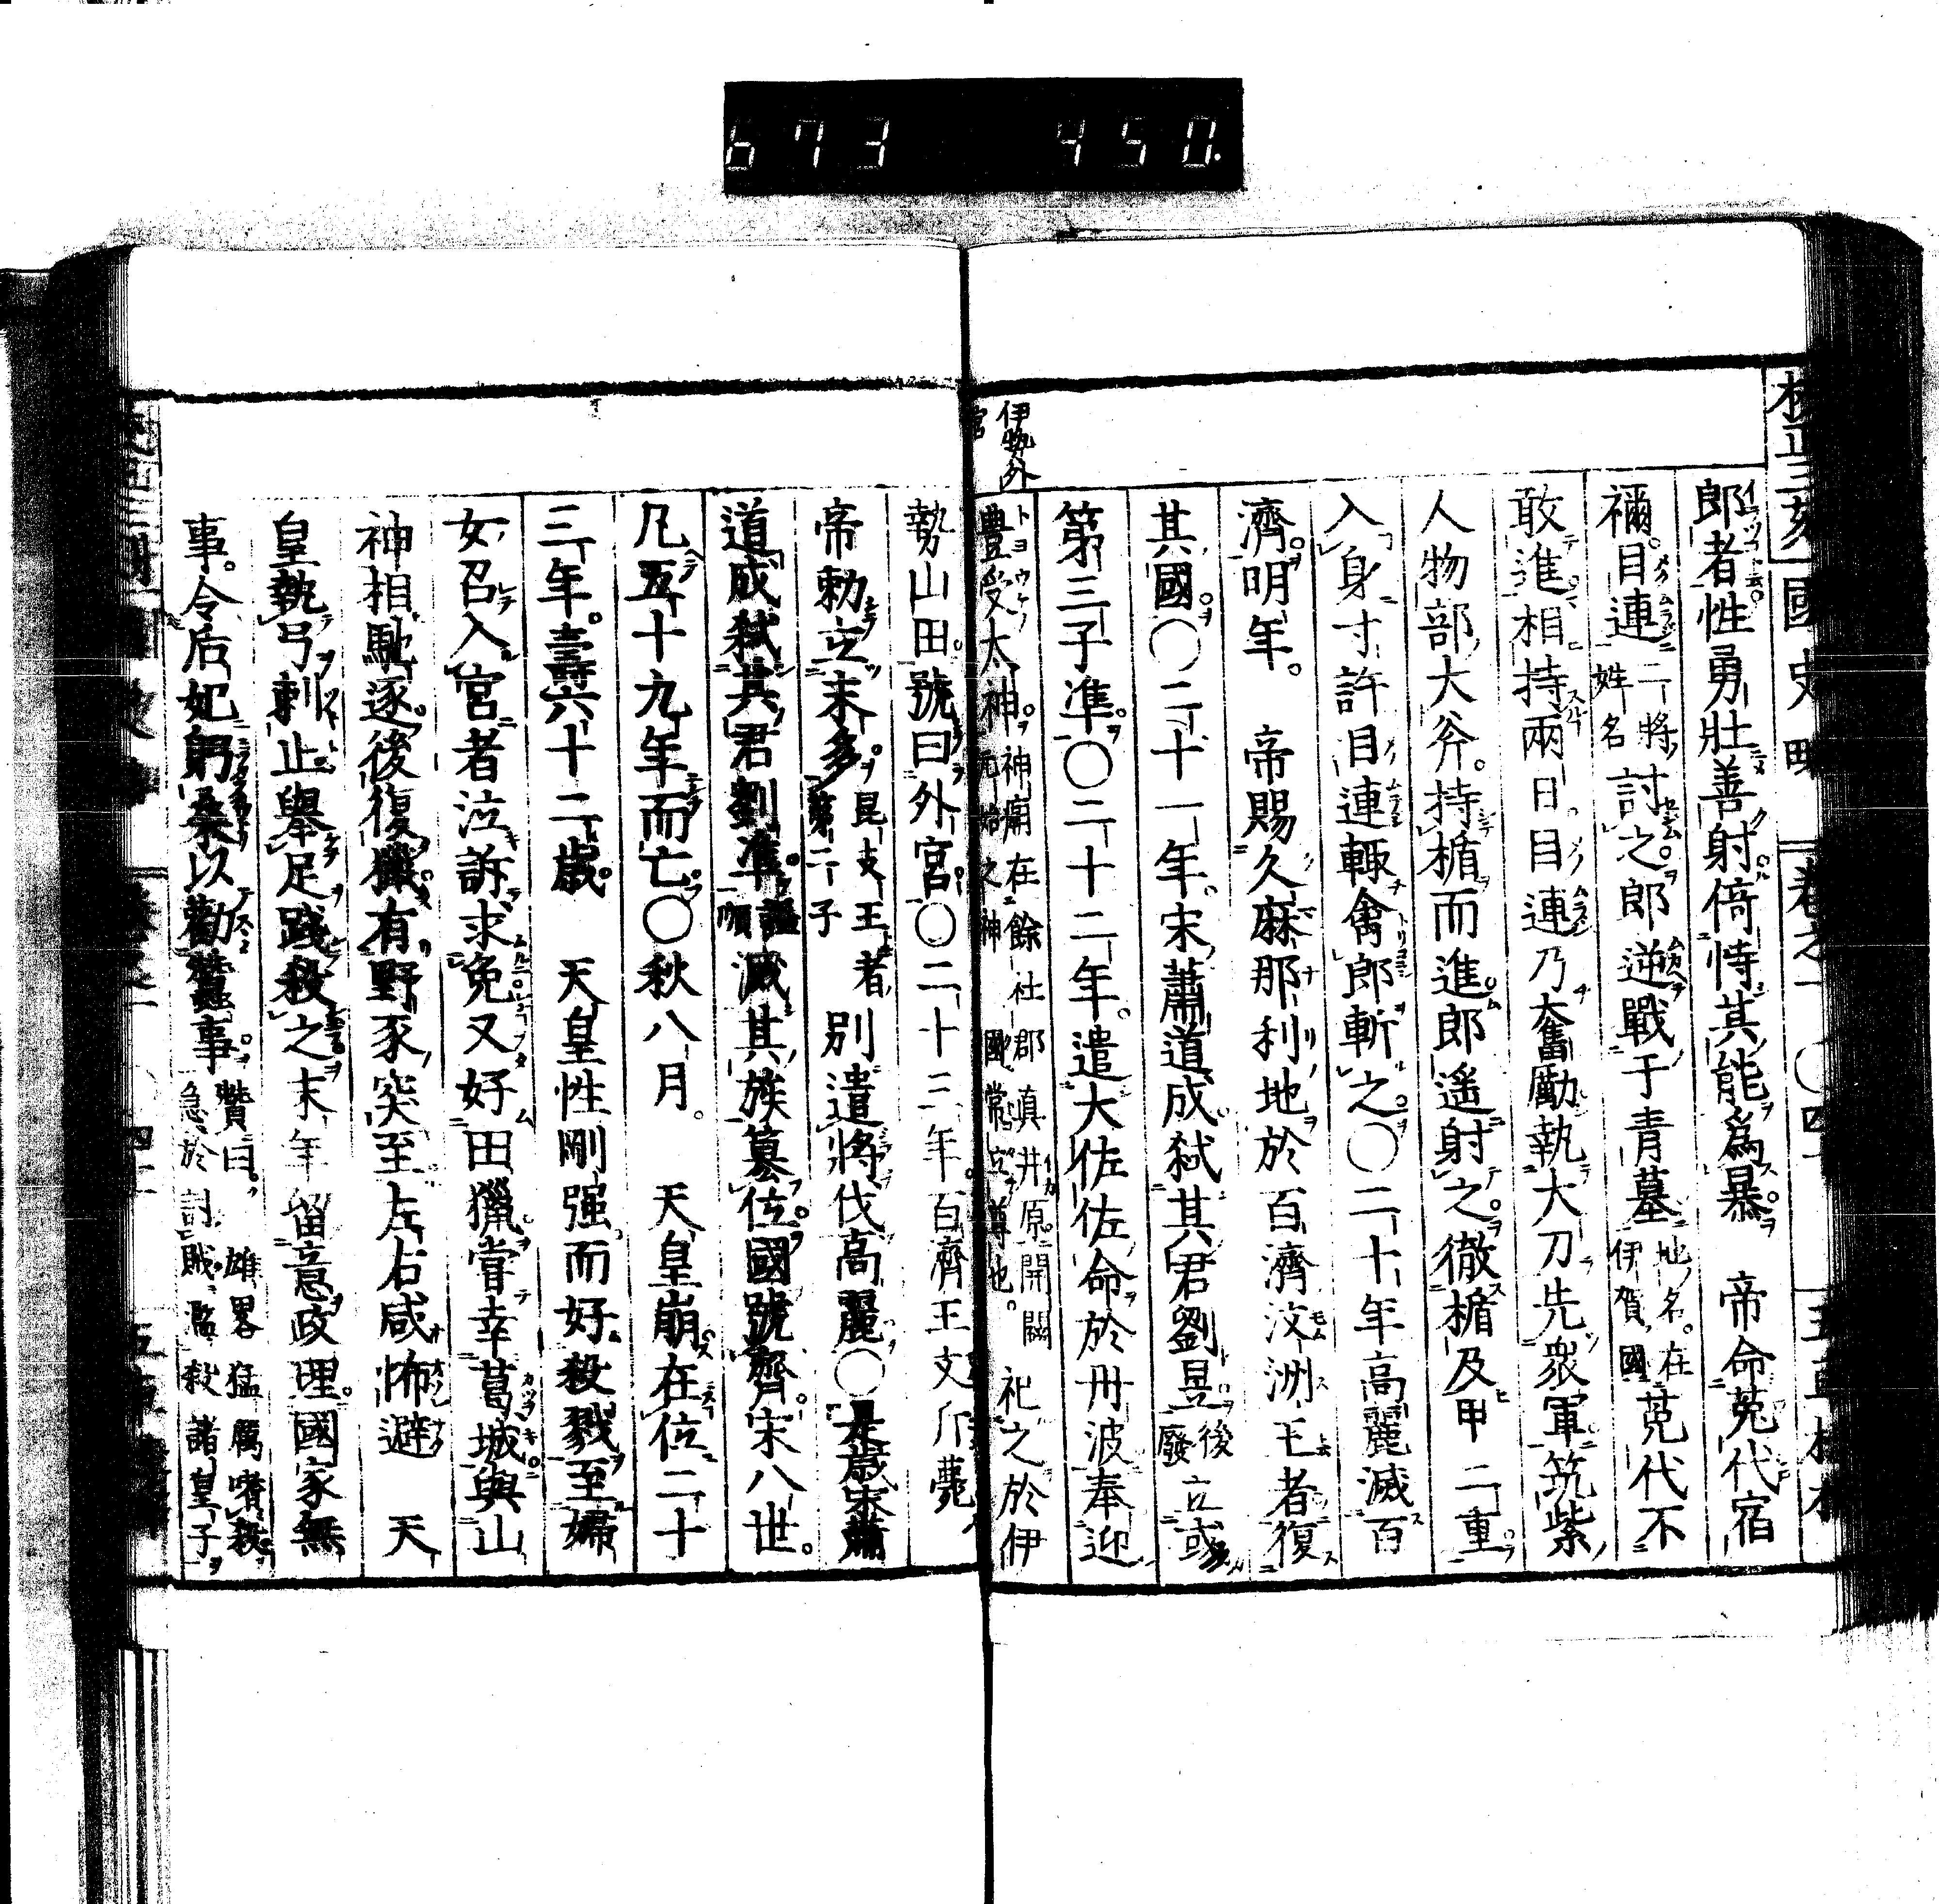 673 450.
國史略
郎者性勇壯善射倚恃其能爲暴 帝命菟代宿
禰目連二將姓名討之郎逆戰于青墓地名在伊賀國菟代不
敢進相持兩日目連乃奮勵執大刀先衆軍筑紫
人物部大斧持楯而進郎遥射之徹楯及甲二重
入身寸許目連輙禽郎斬之〇二十年高麗滅百
濟明年 帝賜久麻那利地於百濟汶洲王者復
其國〇二十一年宋蕭道成弑其君劉昱後廢立或
第三子準〇二十二年遣大佐佐命於丹波奉迎
伊勢外宮
豊受太神神廟在餘社郡真井原開闢元始之神國常立尊也祀之於伊
勢山田號曰外宮〇二十三年百濟王文斤薨
帝勅立末多昆支王第二子者別遣將伐高麗〇是歲宋蕭
道成弑其君劉準謚順滅其族篡位國號齊宋八世
凡五十九年而亡〇秋八月 天皇崩在位二十
三年壽六十二歲 天皇性剛强而好殺戮至婦
女召入宮者泣訴求免又好田獵嘗幸葛城與山
神相馳逐後復獵有野豕突至左右咸怖避 天
皇執弓刺止舉足踐殺之末年留意政理國家無
事令后妃躬桑以勸蠶事贊曰雄畧猛厲嗜殺急於討賊濫殺諸皇子